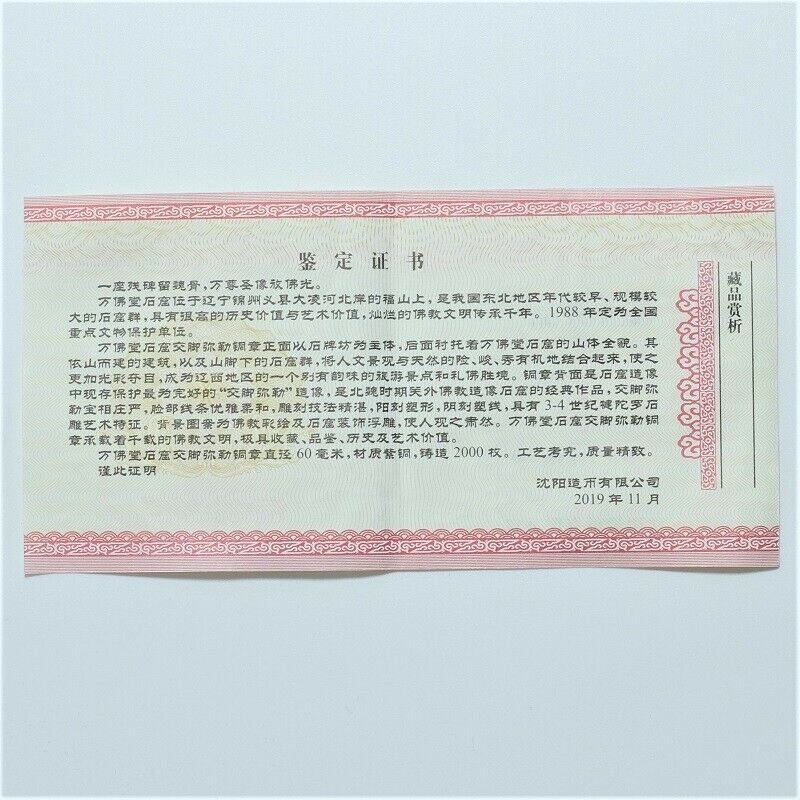 鉴定证书
一座残碑留魏骨，万尊圣像放佛光。
万佛堂石窟位于辽宁锦州义县大凌河北岸的福山上，是我国东北地区年代较早、规模较
大的石窟群，具有很高的历史价值与艺术价值，灿烂的佛教文明传承千年。1988年定为全国
重点文物保护单位。
万佛堂石窟交脚弥勒铜章正面以石牌坊为主体，后面衬托着万佛堂石窟的山体全貌。其
依山而建的建筑，以及山脚下的石窟群，将人文景观与天然的险、峻、秀有机地结合起来，使之
更加光彩夺目，成为辽西地区的一个别有韵味的旅游景点和礼佛胜境。铜章背面是石窟造像
中现存保护最为完好的“交脚弥勒”造像，是北魏时期关外佛教造像石窟的经典作品，交脚弥
勒宝相庄严，脸部线条优雅柔和，雕刻技法精湛，阳刻塑形，阴刻塑线，具有3-4世纪犍陀罗石
雕艺术特征。背景图案为佛教彩绘及石窟装饰浮雕，使人观之肃然。万佛堂石窟交脚弥勒铜
章承载着千载的佛教文明，极具收藏、品鉴、历史及艺术价值。
万佛堂石窟交脚弥勒铜章直径60毫米，材质紫铜，铸造2000枚。工艺考究，质量精致。
谨此证明
沈阳造币有限公司
2019年11月
藏品赏析